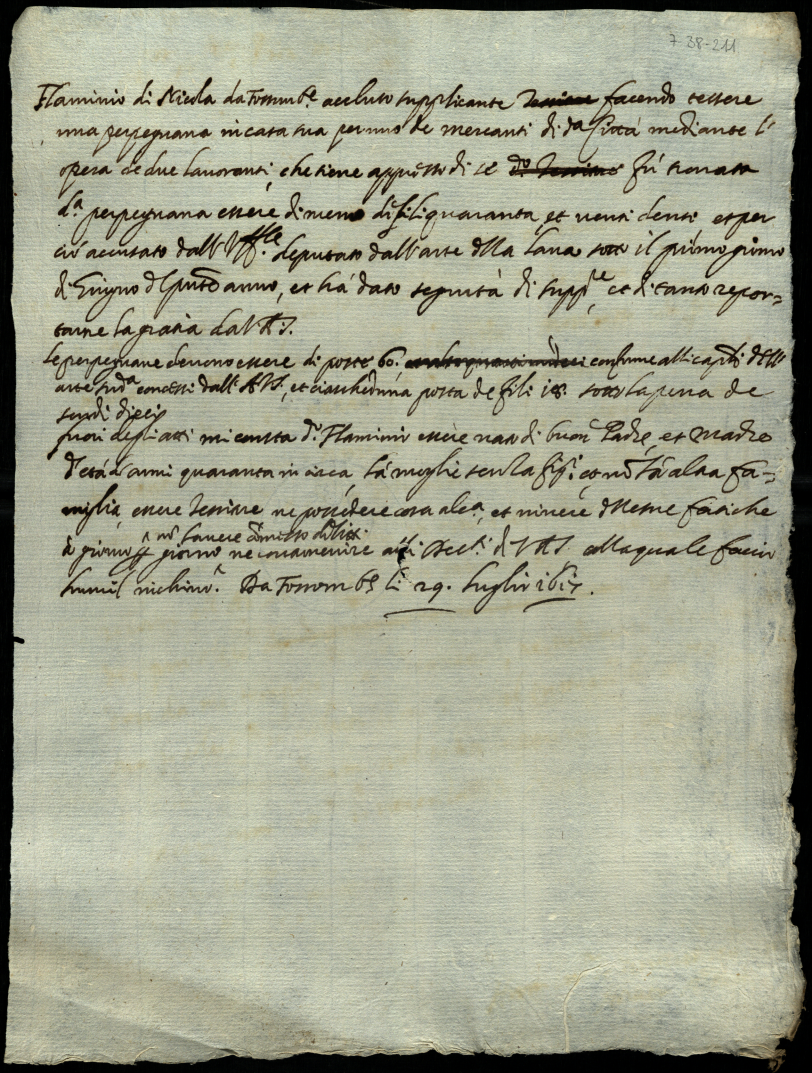 7 38-211
Flaminio di Nicola da Fossomb.e accluso supplicante facendo tessere
una perpegnana in casa sua per uno de mercanti di d.a Città mediante l'
opera de due lavoranti, che tiene appresso di se fù trovata
d.a perpegnana essere di meno di fili quaranta, et venti denti et per
ciò accusato dall' Uff.le deputato dall'arte della lana sotto il primo giorno
di Giugno del pnte anno, et hà dato segurtà di supp.re, et di tanto repor=
tarne la gratia da V.A.S.
Le perpegnane devono essere di poste 60. conforme alli capli dell'
arte sud.a concessi dall' A.V.S., et ciascheduna posta de fili 18. sotto la pena de
scudi dieci
fuori degli atti mi consta d.o Flaminio essere nato di buon Padre, et Madre
d'età d'anni quaranta in circa, hà moglie senza figli, et nõ hà altra fa=
miglia, essere tessitore ne possedere cosa alc.a, et vivere delle sue fatiche
à giorno p giorno nõ havere cõmesso delitti ne contravenire alli decr.ti di V.A.S. alla quale faccio
humil.e inchino. Da Fossomb.e li 29. luglio 1617.